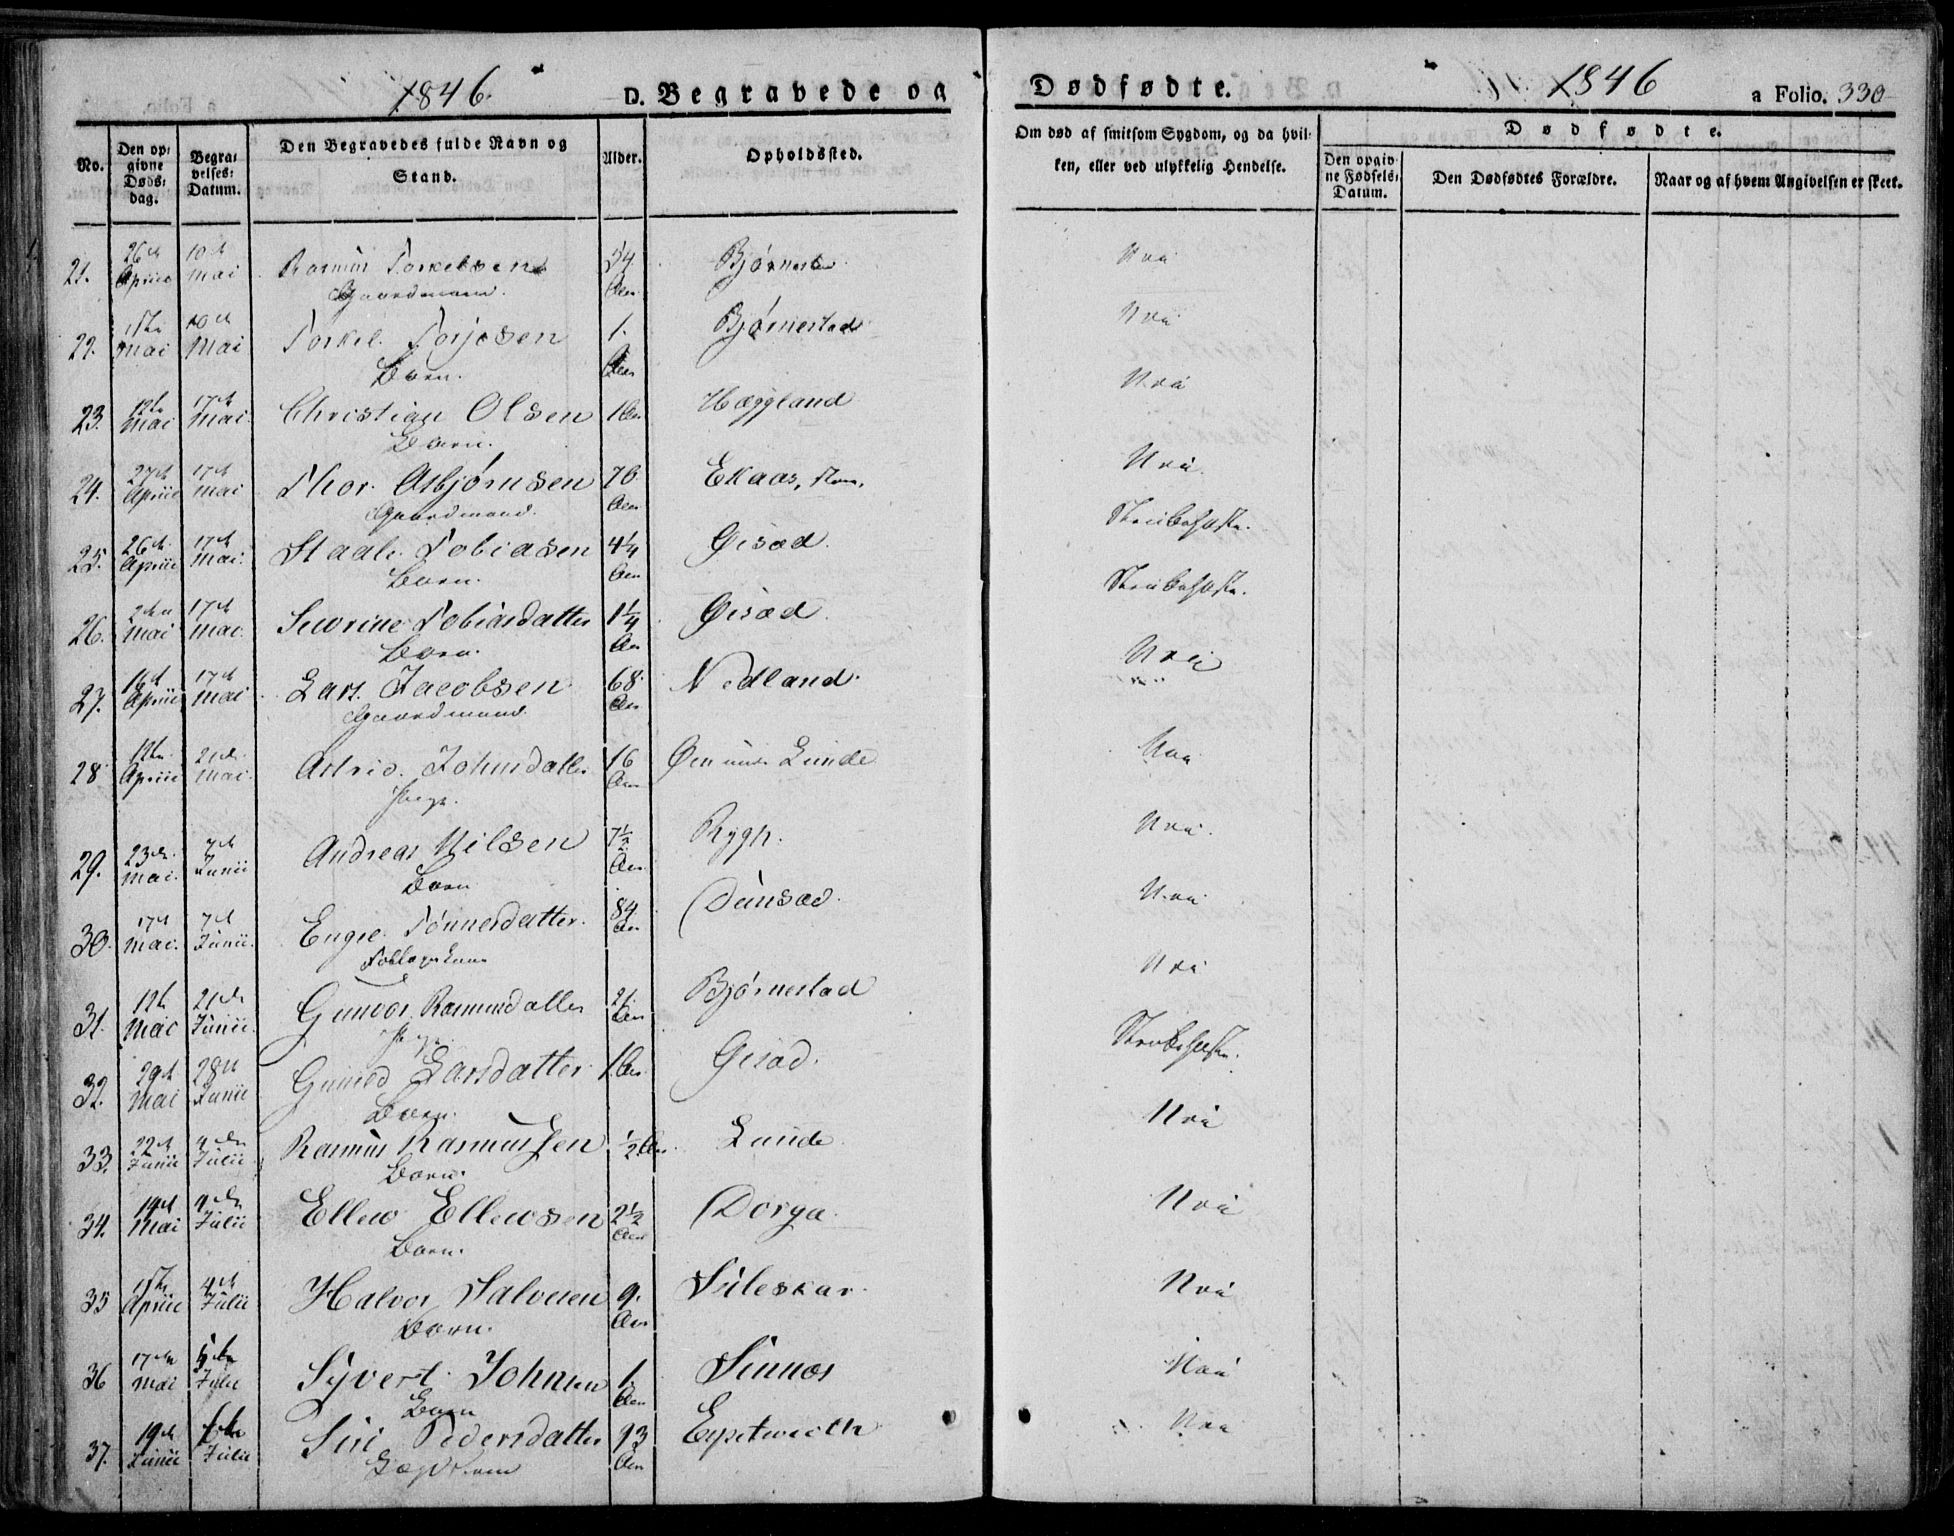 1846.
D. Begravede og
Dødfødte.
1846
a Folio. 330
No.
Den opgivne Døds:dag.
Begravelses:Datum.
Den Begravedes fulde Navn og Stand.
Alder.
Opholdssted.
Om død af smitsom Sygdom, og da hvilken, eller ved ulykkelig Hendelse.
Dødfødte.
Den opgivne Fødsels:Datum.
Den Dødfødtes Forældre.
Naar og af hvem Angivelsen er skeet.
21. 26de April 10de Mai Rasmus Torkelsen 54 Bjørnestad Nei
Gaardmand. Aar
22. Mai 10de Mai Torkel Torjesen 1. Bjørnestad Nei
Barn. Aar
23. 12te Mai 17de Mai Christian Olsen 1 Aar Hæggland Nei
Barn.
24. 27de April 17de Mai Thor Asbjørnsen 76 Ekaas, Nei
Gaardmand. Aar
25. 26de April 17de Mai. Staale Tobiasen 4¼ Gisæd. Strubehoste.
Barn. Aar
26. 2den Mai 17de Mai. Severine Tobiasdatter 1¼ Gisæd. Strubehoste.
Barn. Aar
27. 16de April 17de Mai Lars Jacobsen 68 Nedland. Nei
Gaardmand. Aar
28 12te April 21de Mai. Astrid Johnsdatter 16 Øen under Lunde Nei
Pige. Aar
29. 23de Mai. 7de Junii Andreas Nilsen 7½ Rygh. Nei.
Barn Aar
30. 17de Mai. 7de Junii. Engle Tønnesdatter 84 Dunsæd. Nei
Aar
31. 12te Mai 21de Junii. Gunvor Rasmusdatter 21 Bjørnestad Nei
Pige Aar
32. 29de Mai 28de Junii Gunild Larsdatter 1 Aar Gisæd. Strubehoste.
Barn.
33. 22de Junii 4de Julii Rasmus Rasmussen ½ Aar Lunde Nei
Barn.
34. 14de Mai 4de Julii Ellew Ellewsen 2½ Dorga Nei
Barn. Aar
35 April 4de Julii Halvor Salvesen 9. Suleskar. Nei
Barn. Aar
36 17de Mai Julii Syvert Johnsen 1. Sinnes Nei
Barn Aar
37. 19de Junii Julii Siri Pedersdatter 93 Nei
Aar